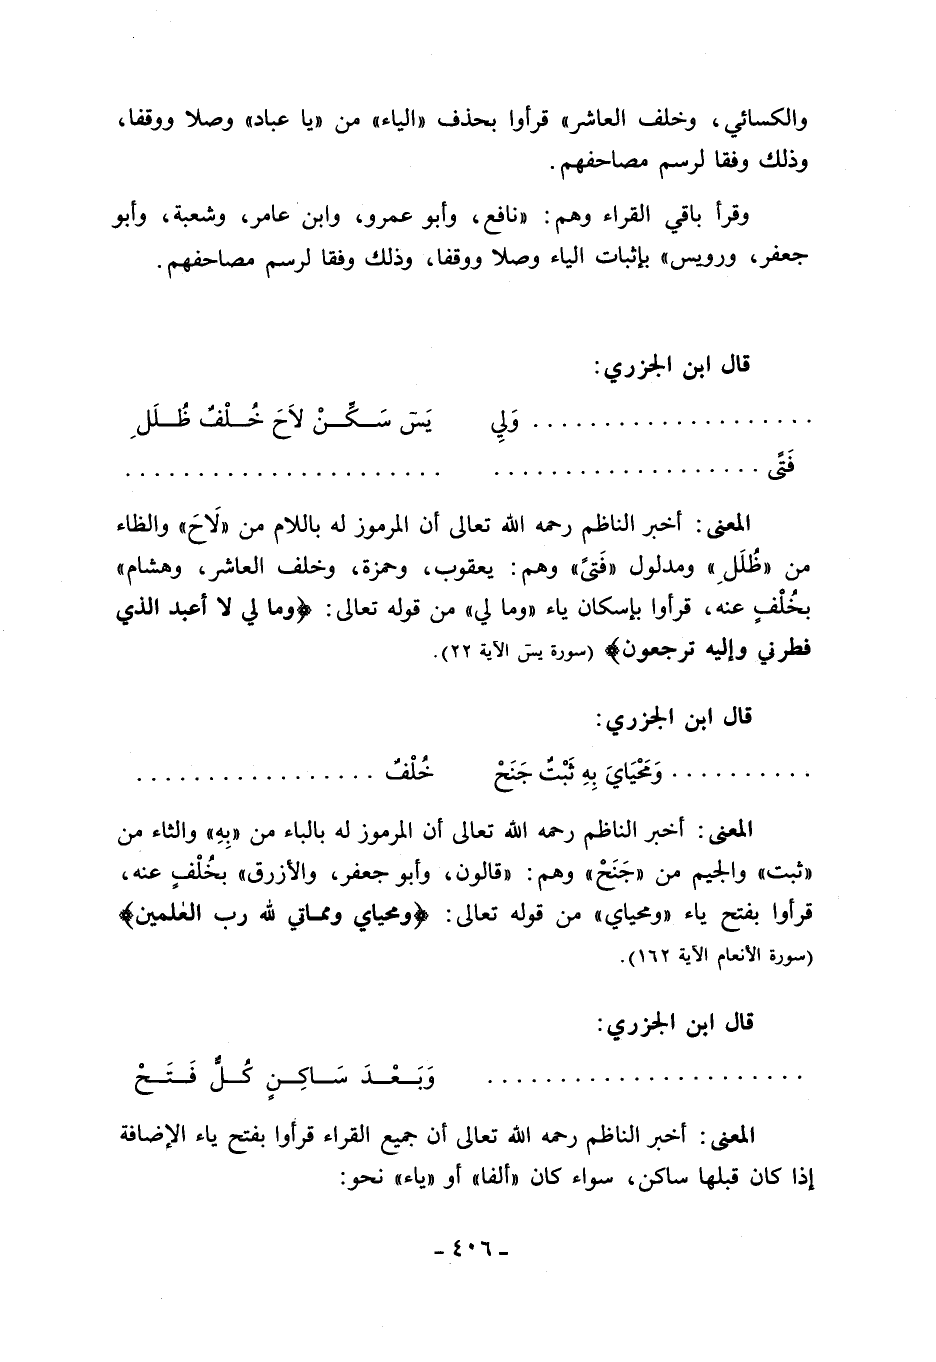 والكسائي، وخلف العاشر» قرأوا بحذف «الياء» من «يا عباد» وصلا ووقفا،
وذلك وفقا لرسم مصاحفهم.
وقرأ باقي القراء وهم: «نافع، وأبو عمرو، وابن عامر، وشعبة، وأبو
جعفر، ورويس» بإثبات الياء وصلا ووقفا، وذلك وفقا لرسم مصاحفهم.
قال ابن الجزري:
.................... وَلِي يَسَ سَكِّنْ لاَحَ خُلْفٌ ظُلَلِ
فَتًى ................... ......................
المعنى: أخبر الناظم رحمه الله تعالى أن المرموز له باللام من «لَاحَ» والظاء
من «ظُلَلِ» ومدلول «فَتىً» وهم: يعقوب، وحمزة، وخلف العاشر، وهشام»
بخُلْفٍ عنه، قرأوا بإسكان ياء «وما لي» من قوله تعالى: ﴿وما لي لا أعبد الذي
فطرني وإليه ترجعون﴾ (سورة يسَ الآية ٢٢).
قال ابن الجزري:
.......... وَمَحْيَايَ بِهِ ثَبْتٌ جَنَحْ خُلْفٌ .................
المعنى: أخبر الناظم رحمه الله تعالى أن المرموز له بالباء من «بِهِ» والثاء من
«ثبت» والجيم من «جَنَحْ» وهم: «قالون، وأبو جعفر، والأزرق» بخُلْفٍ عنه،
قرأوا بفتح ياء «ومحياي» من قوله تعالى: ﴿ومحياي ومماتي لله رب العٰلمين﴾
(سورة الأنعام الآية ١٦٢).
قال ابن الجزري:
...................... وَبَعْدَ سَاكِنٍ كُلٌّ فَتَحْ
المعنى: أخبر الناظم رحمه الله تعالى أن جميع القراء قرأوا بفتح ياء الإضافة
إذا كان قبلها ساكن، سواء كان «ألفا» أو «ياء» نحو:
- ٤٠٦ -